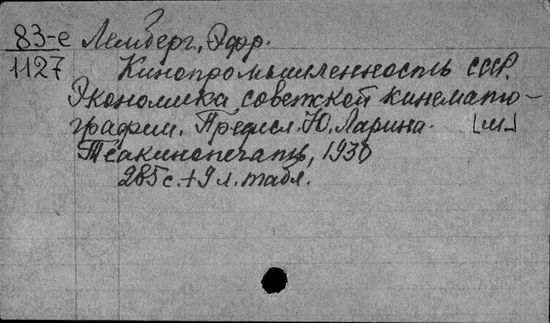 83-е Лемберг, Эфр.
1127 Кинопромышленность СССР.
Экономика советской кинемато-
графии. Предисл. Ю. Ларина. [М.]
Теакинопечать, 1930
285 с. + 9 л. табл.